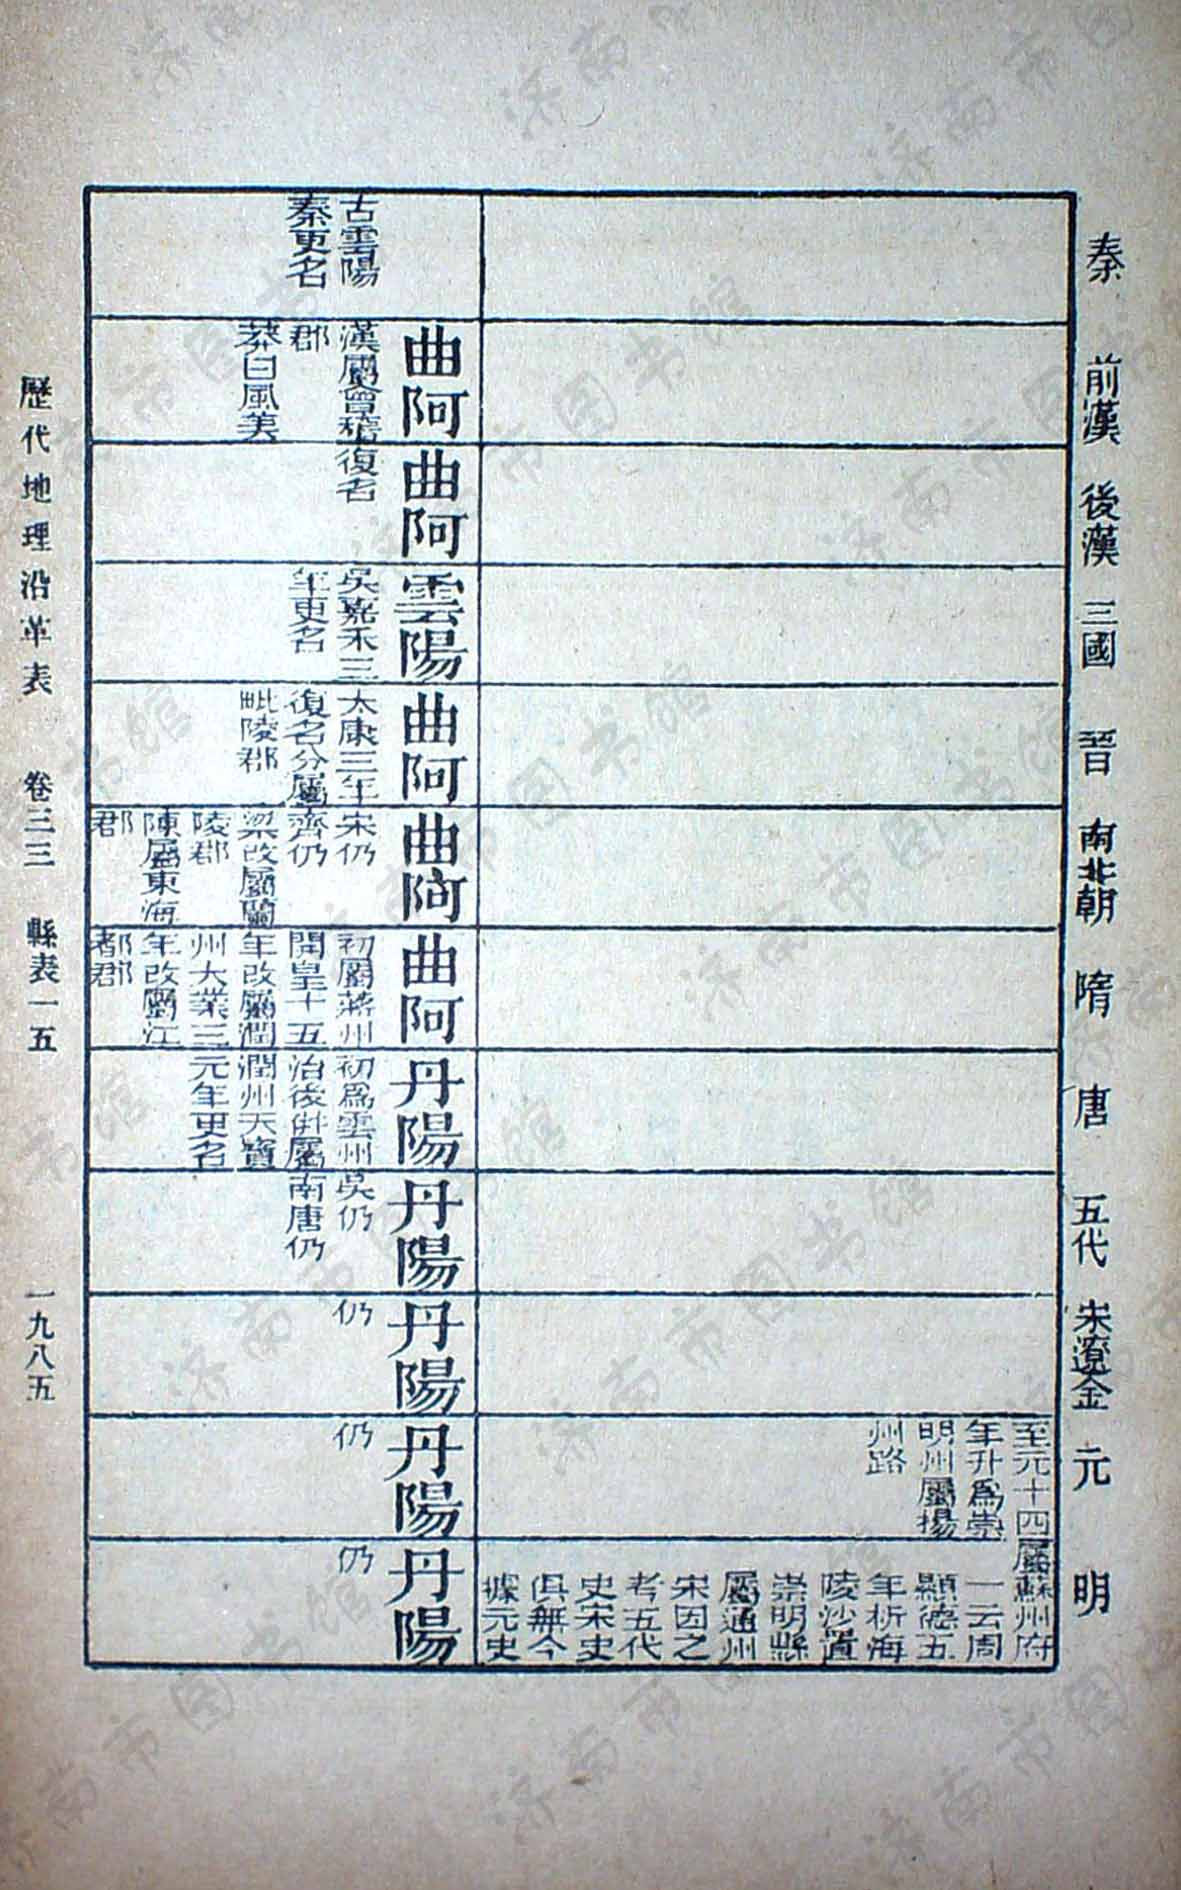 秦
前漢
後漢
三國
晉
南北朝
隋
唐
五代
宋遼金
元
明
至元十四
年升爲崇
明州屬揚
州路
屬蘇州府
一云周
顯德五
年析海
陵沙置
崇明縣
屬通州
宋因之
考五代
史宋史
俱無今
據元史
古雲陽
秦更名
曲阿
漢屬會稽
郡
莽曰風美
曲阿
復名
雲陽
吳嘉禾三
年更名
曲阿
太康三年
復名分屬
毗陵郡
曲阿
宋仍
齊仍
梁改屬蘭
陵郡
陳屬東海
郡
曲阿
初屬蔣州
開皇十五
年改屬潤
州大業三
年改屬江
都郡
丹陽
初爲雲州
治後併屬
潤州天寶
元年更名
丹陽
吳仍
南唐仍
丹陽
仍
丹陽
仍
丹陽
仍
歷代地理沿革表 卷三三 縣表一五 一九八五
济南市图书馆